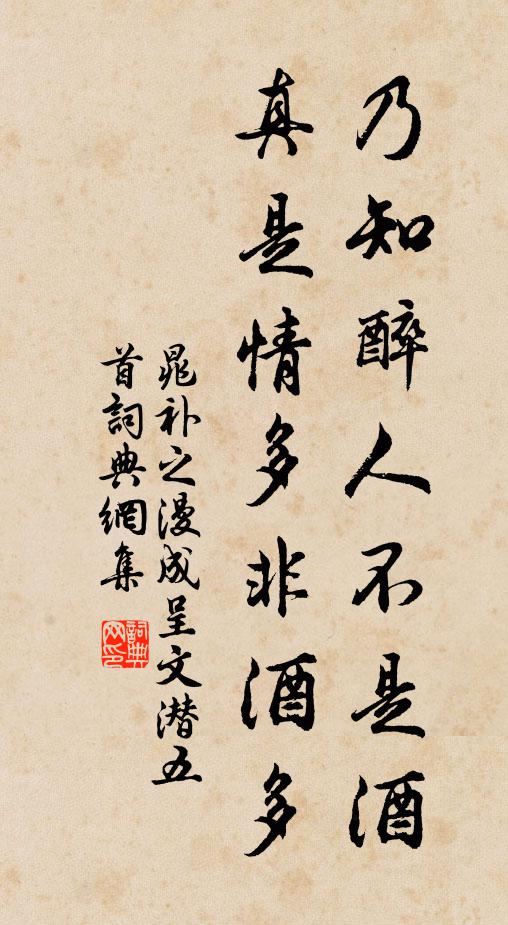 乃知醉人不是酒
真是情多非酒多
晁补之漫成呈文潜五
首詞典網集
詞典
网印